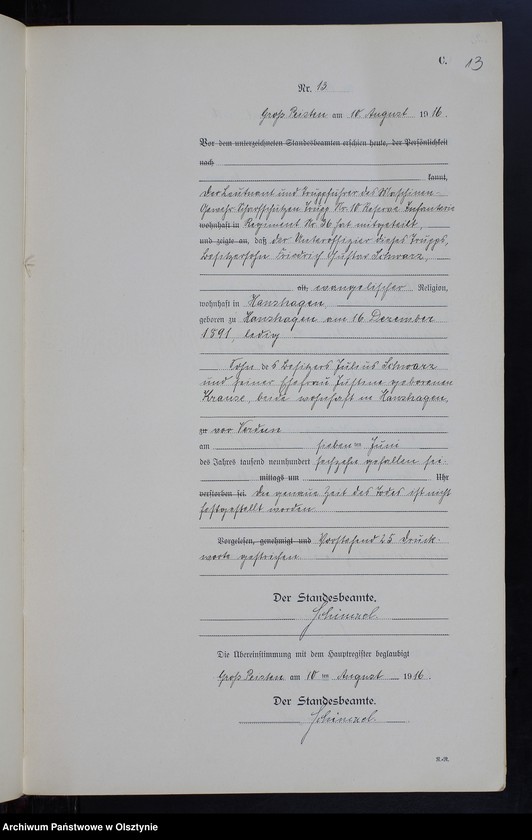 C. 13
Nr. 13
Groß Peisten am 10 August 1916.
Vor dem unterzeichneten Standesbeamten erschien heute, der Persönlichkeit
nach
kannt,
Der Leutnant und Truppführer des Maschinen-
Gewehr Scharfschützen Trupp Nr. 10 Reserve Infanterie
wohnhaft in Regiment Nr. 36 hat mitgeteilt,
und zeigte an, daß der Unteroffizier dieses Trupps,
Besitzersohn Friedrich Gustav Schwarz,
alt, evangelischer Religion,
wohnhaft in Hanshagen,
geboren zu Hanshagen am 16 Dezember
1891, ledig
Sohn des Besitzers Julius Schwarz
und seiner Ehefrau Justine geborenen
Krause, beide wohnhaft in Hanshagen,
zu vor Verdun
am sieben ten Juni
des Jahres tausend neunhundert sechzehn gefallen sei
mittags um Uhr
verstorben sei. Die genaue Zeit des Todes ist nicht
festgestellt worden.
Vorgelesen, genehmigt und Vorstehend 25 Druck-
worte gestrichen.
Der Standesbeamte.
Die Übereinstimmung mit dem Hauptregister beglaubigt
Groß Peisten am 10 ten August 1916.
Der Standesbeamte.
Archiwum Państwowe w Olsztynie